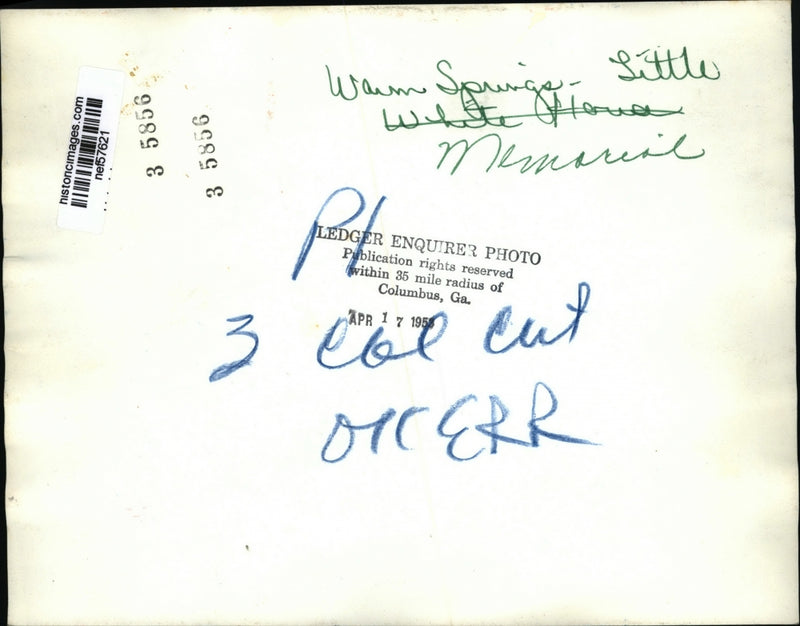 historicimages.com
nef57621
3 5856
3 5856
Warm Springs - Little
White House
Memorial
P1
LEDGER ENQUIRER PHOTO
Publication rights reserved
within 35 mile radius of
Columbus, Ga.
APR 17 195
3 col cut
OK ERR